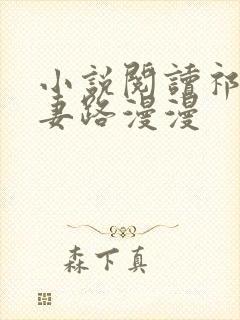 小説閱讀祁
妻路漫漫
森下真